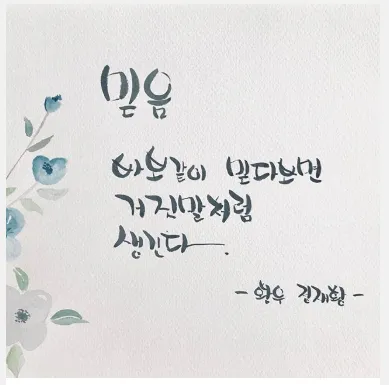 믿음
바보같이 믿다보면
거짓말처럼
생긴다.
김재활